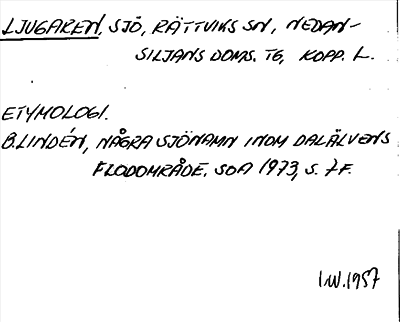 LJUGAREN, SJÖ, RÄTTVIKS SN, NEDAN-
SILJANS DOMS. TG, KOPP. L.
ETYMOLOGI.
B.LINDÉN, NÅGRA SJÖNAMN INOM DALÄLVENS
FLODOMRÅDE. SOÅ 1973, S. 7 F.
I.W.1957